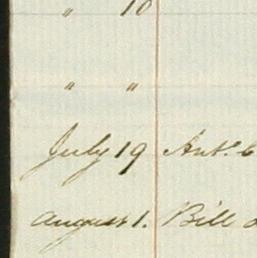 " 10
" "
July 19 Ant. 6
August 1. Bill